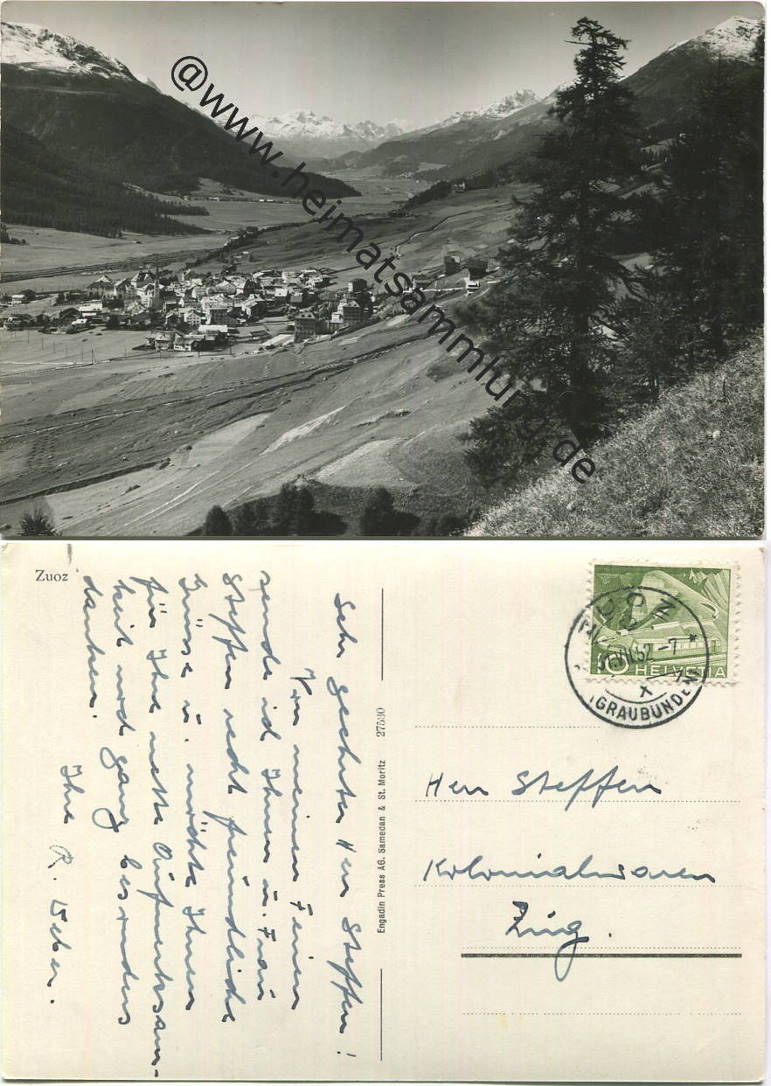 @www.heimatsammlung.de
Zuoz
Sehr geehrter Herr Steffen!
Von meinen Ferien
sende ich Ihnen u. Frau
Steffen recht freundliche
Grüsse u. möchte Ihnen
für Ihre nette Aufmerksam-
keit noch ganz besonders
danken.
Ihre R. Weber.
Engadin Press AG. Samedan & St. Moritz 27580
HELVETIA
(GRAUBÜNDEN)
Herr Steffen
Kolonialwaren
Zug.